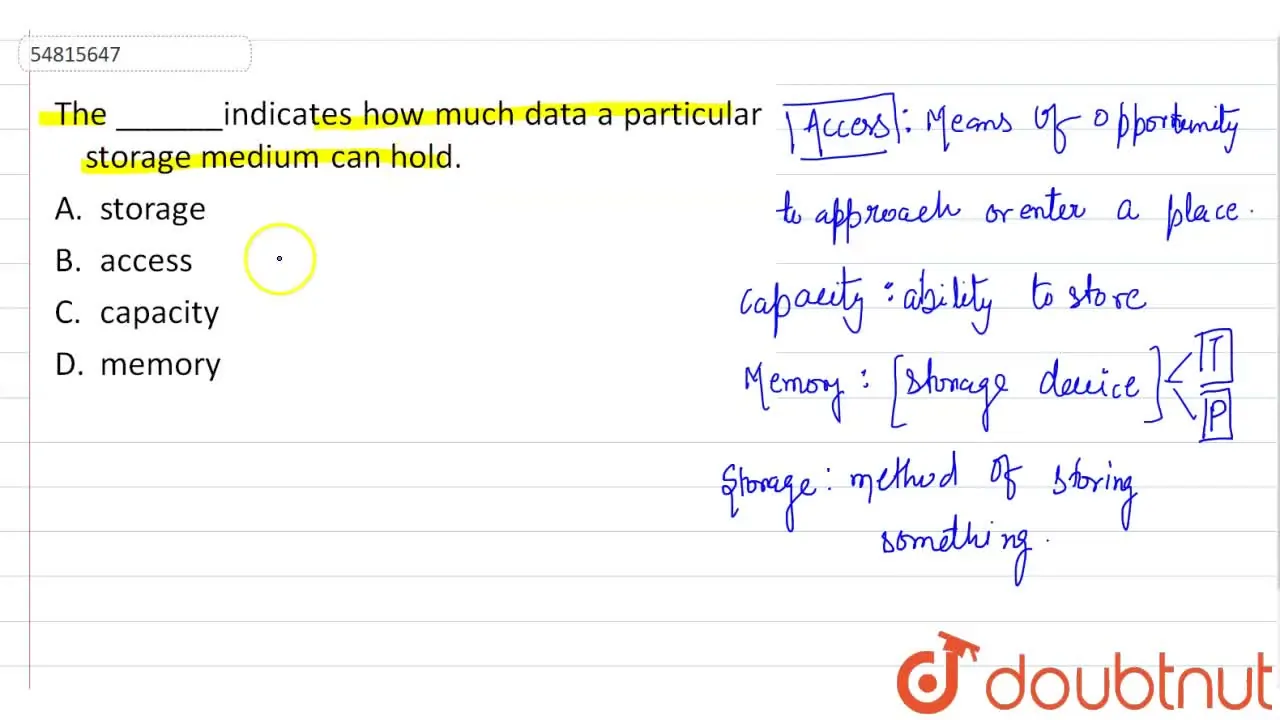 54815647
The _______indicates how much data a particular
storage medium can hold.
A. storage
B. access
C. capacity
D. memory
Access : Means Of opportunity
to approach or enter a place.
Capacity : ability to store
Memory : [storage device] T
P
Storage : method of storing
something.
doubtnut